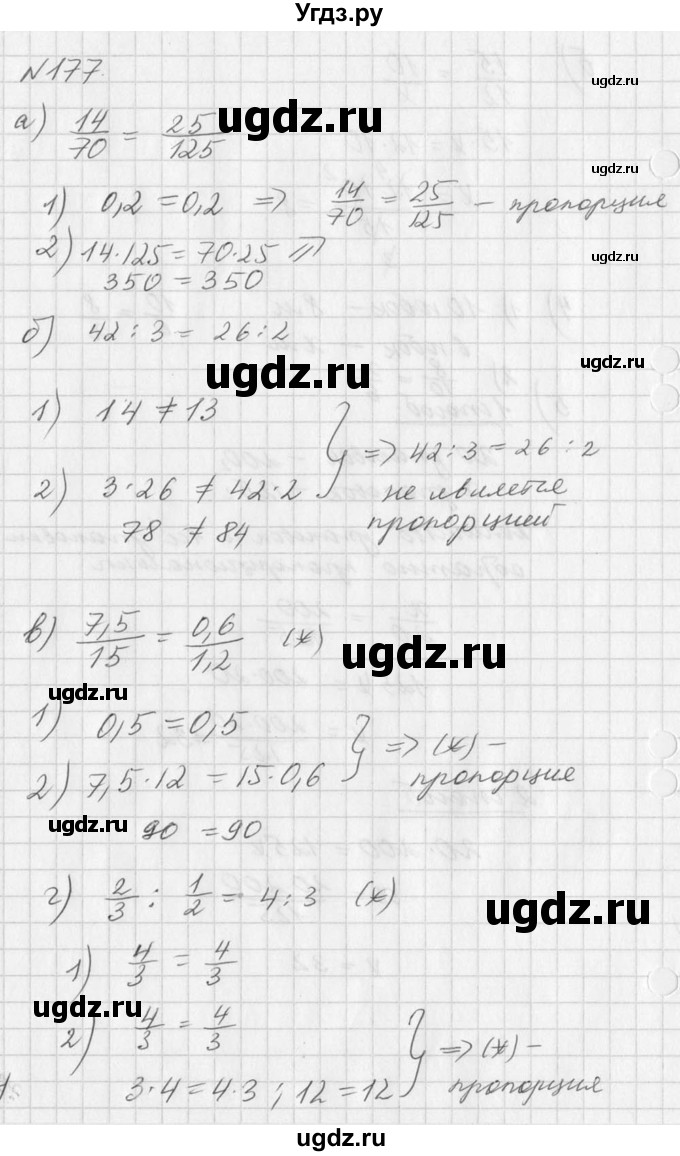 Угдз.ру
N177.
ugdz.ru
а) 14/70 = 25/125
ugdz.ru
ugdz.ru
1) 0,2 = 0,2 => 14/70 = 25/125 – пропорция
2) 14·125 = 70·25 =>
ugdz.ru
350 = 350
б) 42 : 3 = 26 : 2
ugdz.ru
ugdz.ru
1) 14 ≠ 13
} => 42 : 3 = 26 : 2
2) 3·26 ≠ 42·2
не является
78 ≠ 84
пропорцией
в) 7,5/15 = 0,6/1,2 (*)
ugdz.ru
ugdz.ru
1) 0,5 = 0,5
} => (*) –
2) 7,5·12 = 15·0,6
пропорция
ugdz.ru
90 = 90
г) 2/3 : 1/2 = 4 : 3 (*)
ugdz.ru
1) 4/3 = 4/3
ugdz.ru
2) 4/3 = 4/3
} => (*) –
3·4 = 4·3 ; 12 = 12
пропорция
ugdz.ru